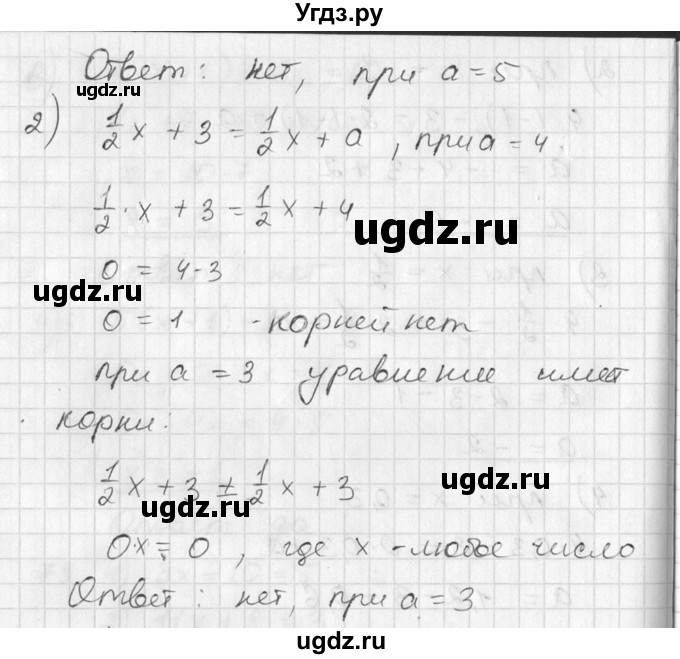 Угдз.ру
Ответ: нет, при a = 5
ugdz.ru
2) 1/2 x + 3 = 1/2 x + a, при a = 4.
1/2 · x + 3 = 1/2 x + 4
ugdz.ru
0 = 4-3
ugdz.ru
0 = 1 - корней нет
при a = 3 уравнение имеет
корни:
1/2 x + 3 = 1/2 x + 3
ugdz.ru
ugdz.ru
0·x = 0, где x - любое число
Ответ: нет, при a = 3
ugdz.ru
ugdz.ru